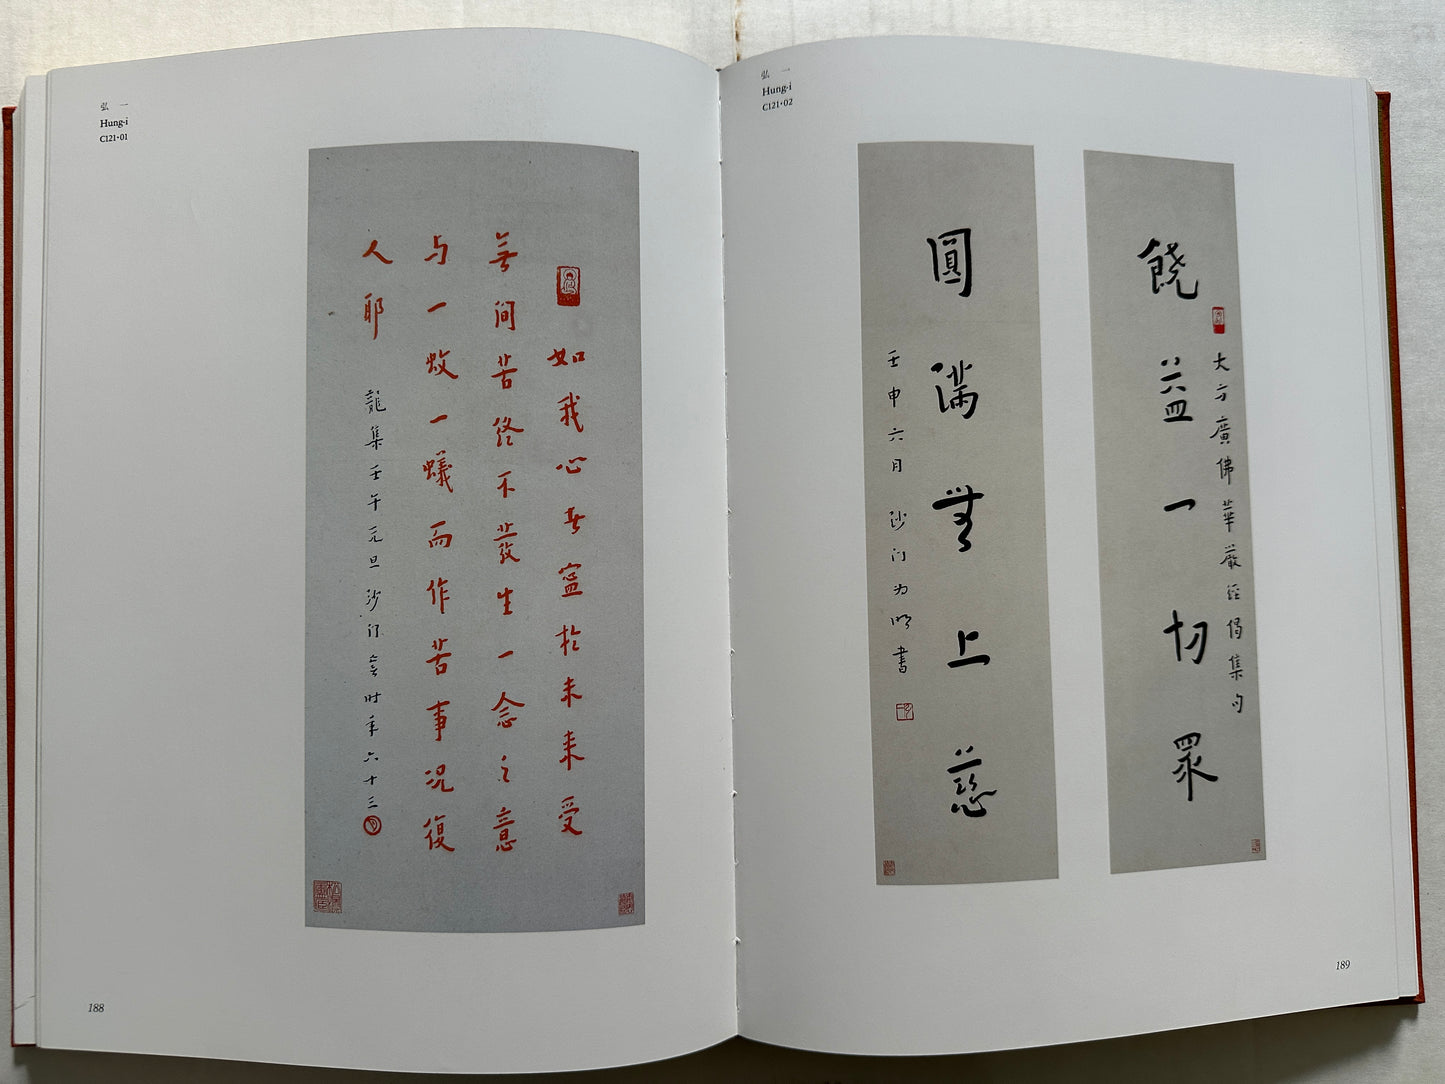 弘 一
Hung-i
C121•01
如我心者寧於未來受
無間苦終不發生一念之意
与一蚊一蟻而作苦事況復
人耶
龍集壬午元旦沙门音时年六十三
188
弘 一
Hung-i
C121•02
饒益一切眾
大方廣佛華嚴經偈集句
圓滿無上慈
壬申六月 沙门为明書
189